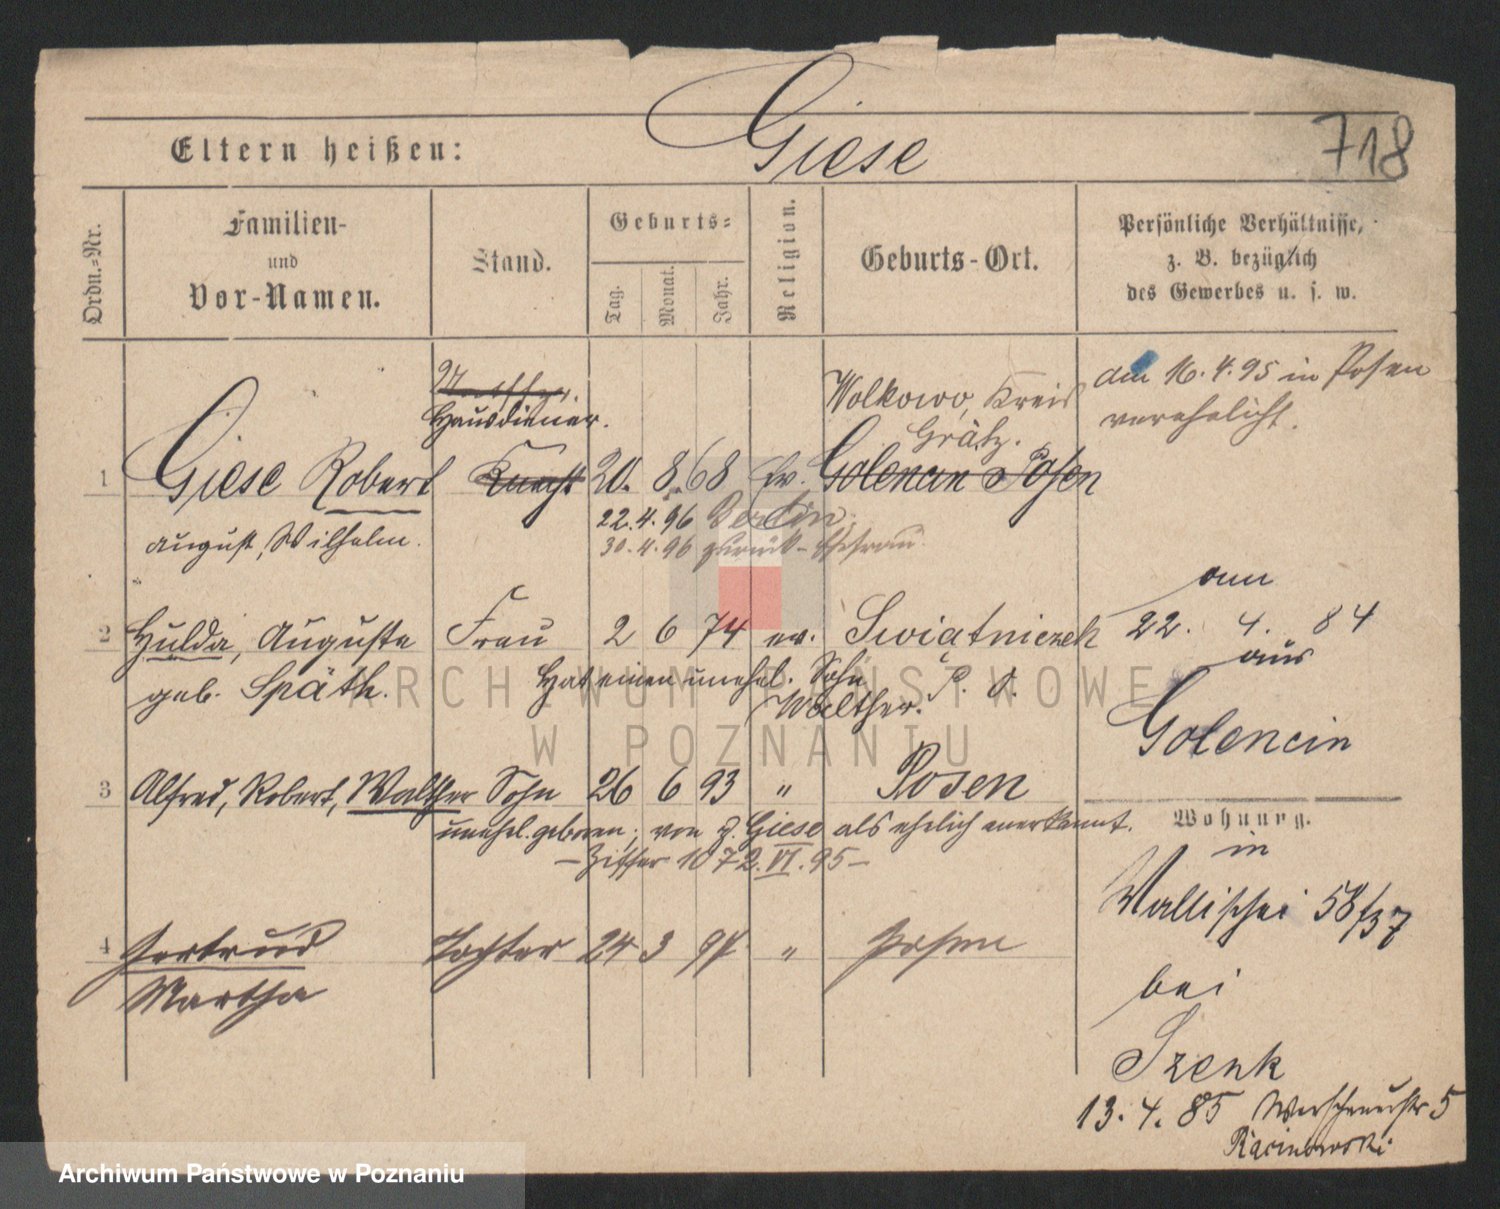 Giese
718
Eltern heißen:
Ordn.-Nr.
Familien-
und
Vor-Namen.
Stand.
Geburts-
Tag.
Monat.
Jahr.
Religion.
Geburts-Ort.
Persönliche Verhältnisse,
z. B. bezüglich
des Gewerbes u. s. w.
Hausdiener.
Wolkowo, Kreis
Grätz.
am 16. 4. 95 in Posen
verehelicht.
1 Giese Robert Knecht 20. 8. 68 ev. Golencin Posen
August, Wilhelm.
22. 4. 96 Berlin.
30. 4. 96 zurück - Ehefrau.
2 Hulda, Auguste Frau 2 6 74 ev. Swiatniczek
geb. Späth.
Hat einen unehel. Sohn
Walther. P. O.
am
22. 4. 84
aus
Golencin
3 Alfred, Robert, Walther Sohn 26 6 93 " Posen
unehel. geboren; von p. Giese als ehelich anerkannt.
- Ziffer 10 72. VI. 95 -
4 Gertrud Tochter 24 3 97 " Posen
Martha
Wohnung.
in
Wallischei 58/37
bei
Szenk
13. 4. 85 5
ARCHIWUM PAŃSTWOWE
W POZNANIU
Archiwum Państwowe w Poznaniu